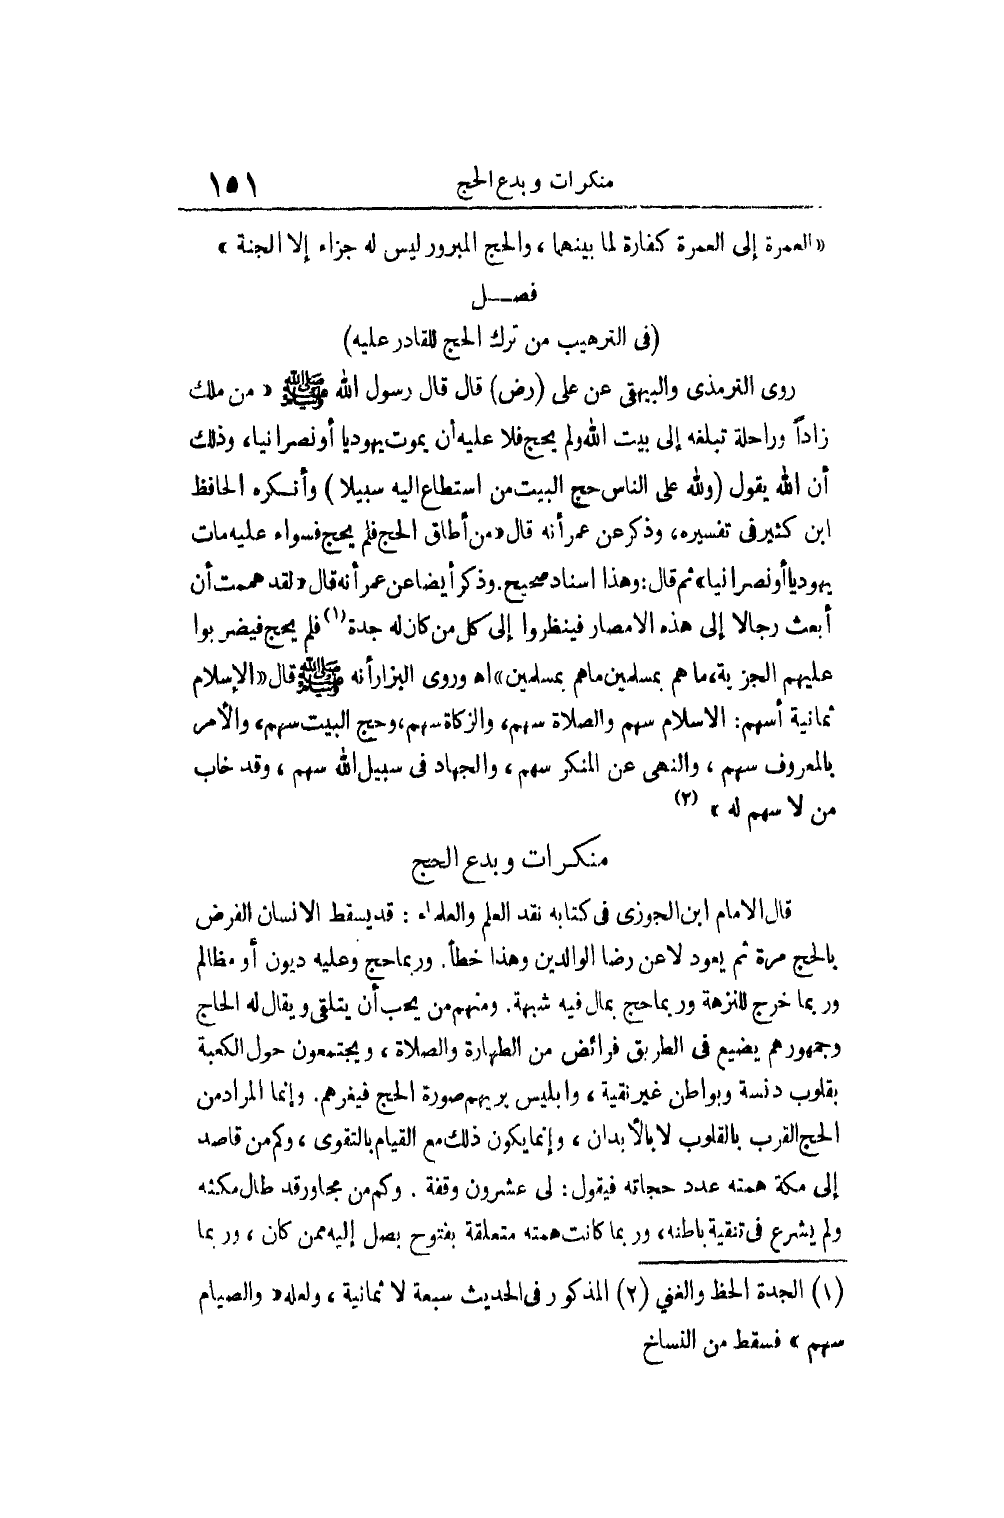 منكرات وبدع الحج ١٥١
«العمرة إلى العمرة كفارة لما بينهما ، والحج المبرور ليس له جزاء إلا الجنة »
فصــل
(فى الترهيب من ترك الحج للقادر عليه)
روى الترمذى والبيهقى عن على (رض) قال قال رسول الله ﷺ « من ملك
زاداً وراحلة تبلغه إلى بيت الله ولم يحج فلا عليه أن يموت يهوديا أو نصرانيا، وذلك
أن الله يقول (ولله على الناس حج البيت من استطاع اليه سبيلا) وأنكره الحافظ
ابن كثير فى تفسيره، وذكر عن عمر أنه قال «من أطاق الحج فلم يحج فسواء عليه مات
يهوديا أو نصرانيا» ثم قال: وهذا اسناد صحيح. وذكر أيضا عن عمر أنه قال «لقد هممت أن
أبعث رجالا إلى هذه الامصار فينظروا إلى كل من كان له جدة (١) فلم يحج فيضربوا
عليهم الجزية، ما هم بمسلمين ما هم بمسلمين» اه وروى البزار أنه ﷺ قال «الإسلام
ثمانية أسهم: الاسلام سهم والصلاة سهم، والزكاة سهم، وحج البيت سهم، والأمر
بالمعروف سهم ، والنهى عن المنكر سهم ، والجهاد فى سبيل الله سهم ، وقد خاب
من لا سهم له » (٢)
منكرات وبدع الحج
قال الامام ابن الجوزى فى كتابه نقد العلم والعلماء : قد يسقط الانسان الفرض
بالحج مرة ثم يعود لا عن رضا الوالدين وهذا خطأ. وربما حج وعليه ديون أو مظالم
وربما خرج للنزهة وربما حج بمال فيه شبهة. ومنهم من يحب أن يتلقى ويقال له الحاج
وجمهورهم يضيع فى الطريق فرائض من الطهارة والصلاة ، ويجتمعون حول الكعبة
بقلوب دنسة وبواطن غير نقية ، وابليس يريهم صورة الحج فيغرهم. وإنما المراد من
الحج القرب بالقلوب لا بالأبدان ، وإنما يكون ذلك مع القيام بالتقوى ، وكم من قاصد
إلى مكة همته عدد حجاته فيقول: لى عشرون وقفة . وكم من مجاور قد طال مكثه
ولم يشرع فى تنقية باطنه، وربما كانت همته متعلقة بفتوح يصل إليه ممن كان ، وربما
(١) الجدة الحظ والغني (٢) المذكور فى الحديث سبعة لا ثمانية ، ولعله « والصيام
سهم » فسقط من النساخ